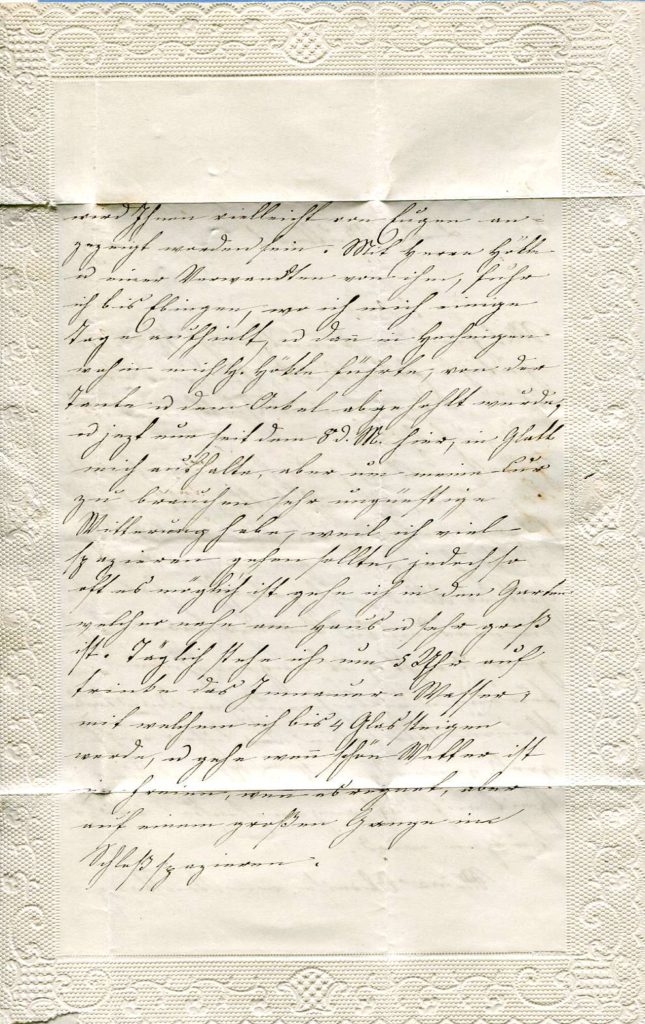 wird Ihnen vielleicht von Eugen an-
gezeigt worden sein. Mit Herrn Hökle
u einer Verwandten von ihm, fuhr
ich bis Ebingen, wo ich mich einige
Tage aufhielt, u dan̄ in Hechingen
wohin mich H. Hökle führte, von der
Tante u dem Onkel abgehohlt wurde,
u jezt nun seit dem 8 d. M. hier, in Glatt
mich aufhalte, aber um meine Cur
zu brauchen sehr ungünstige
Witterung habe, weil ich viel
spazieren gehen sollte, jedoch so
oft es möglich ist gehe ich in den Garten
welcher nahe am Haus u sehr groß
ist. Täglich stehe ich um 5 Uhr auf
trinke das Imnauer-Wasser,
mit welchem ich bis 4 Glas steigen
werde, u gehe wen̄ schön Wetter ist
im Freien, wen es regnet, aber
auf einem großen Gange im
Schloß spazieren.